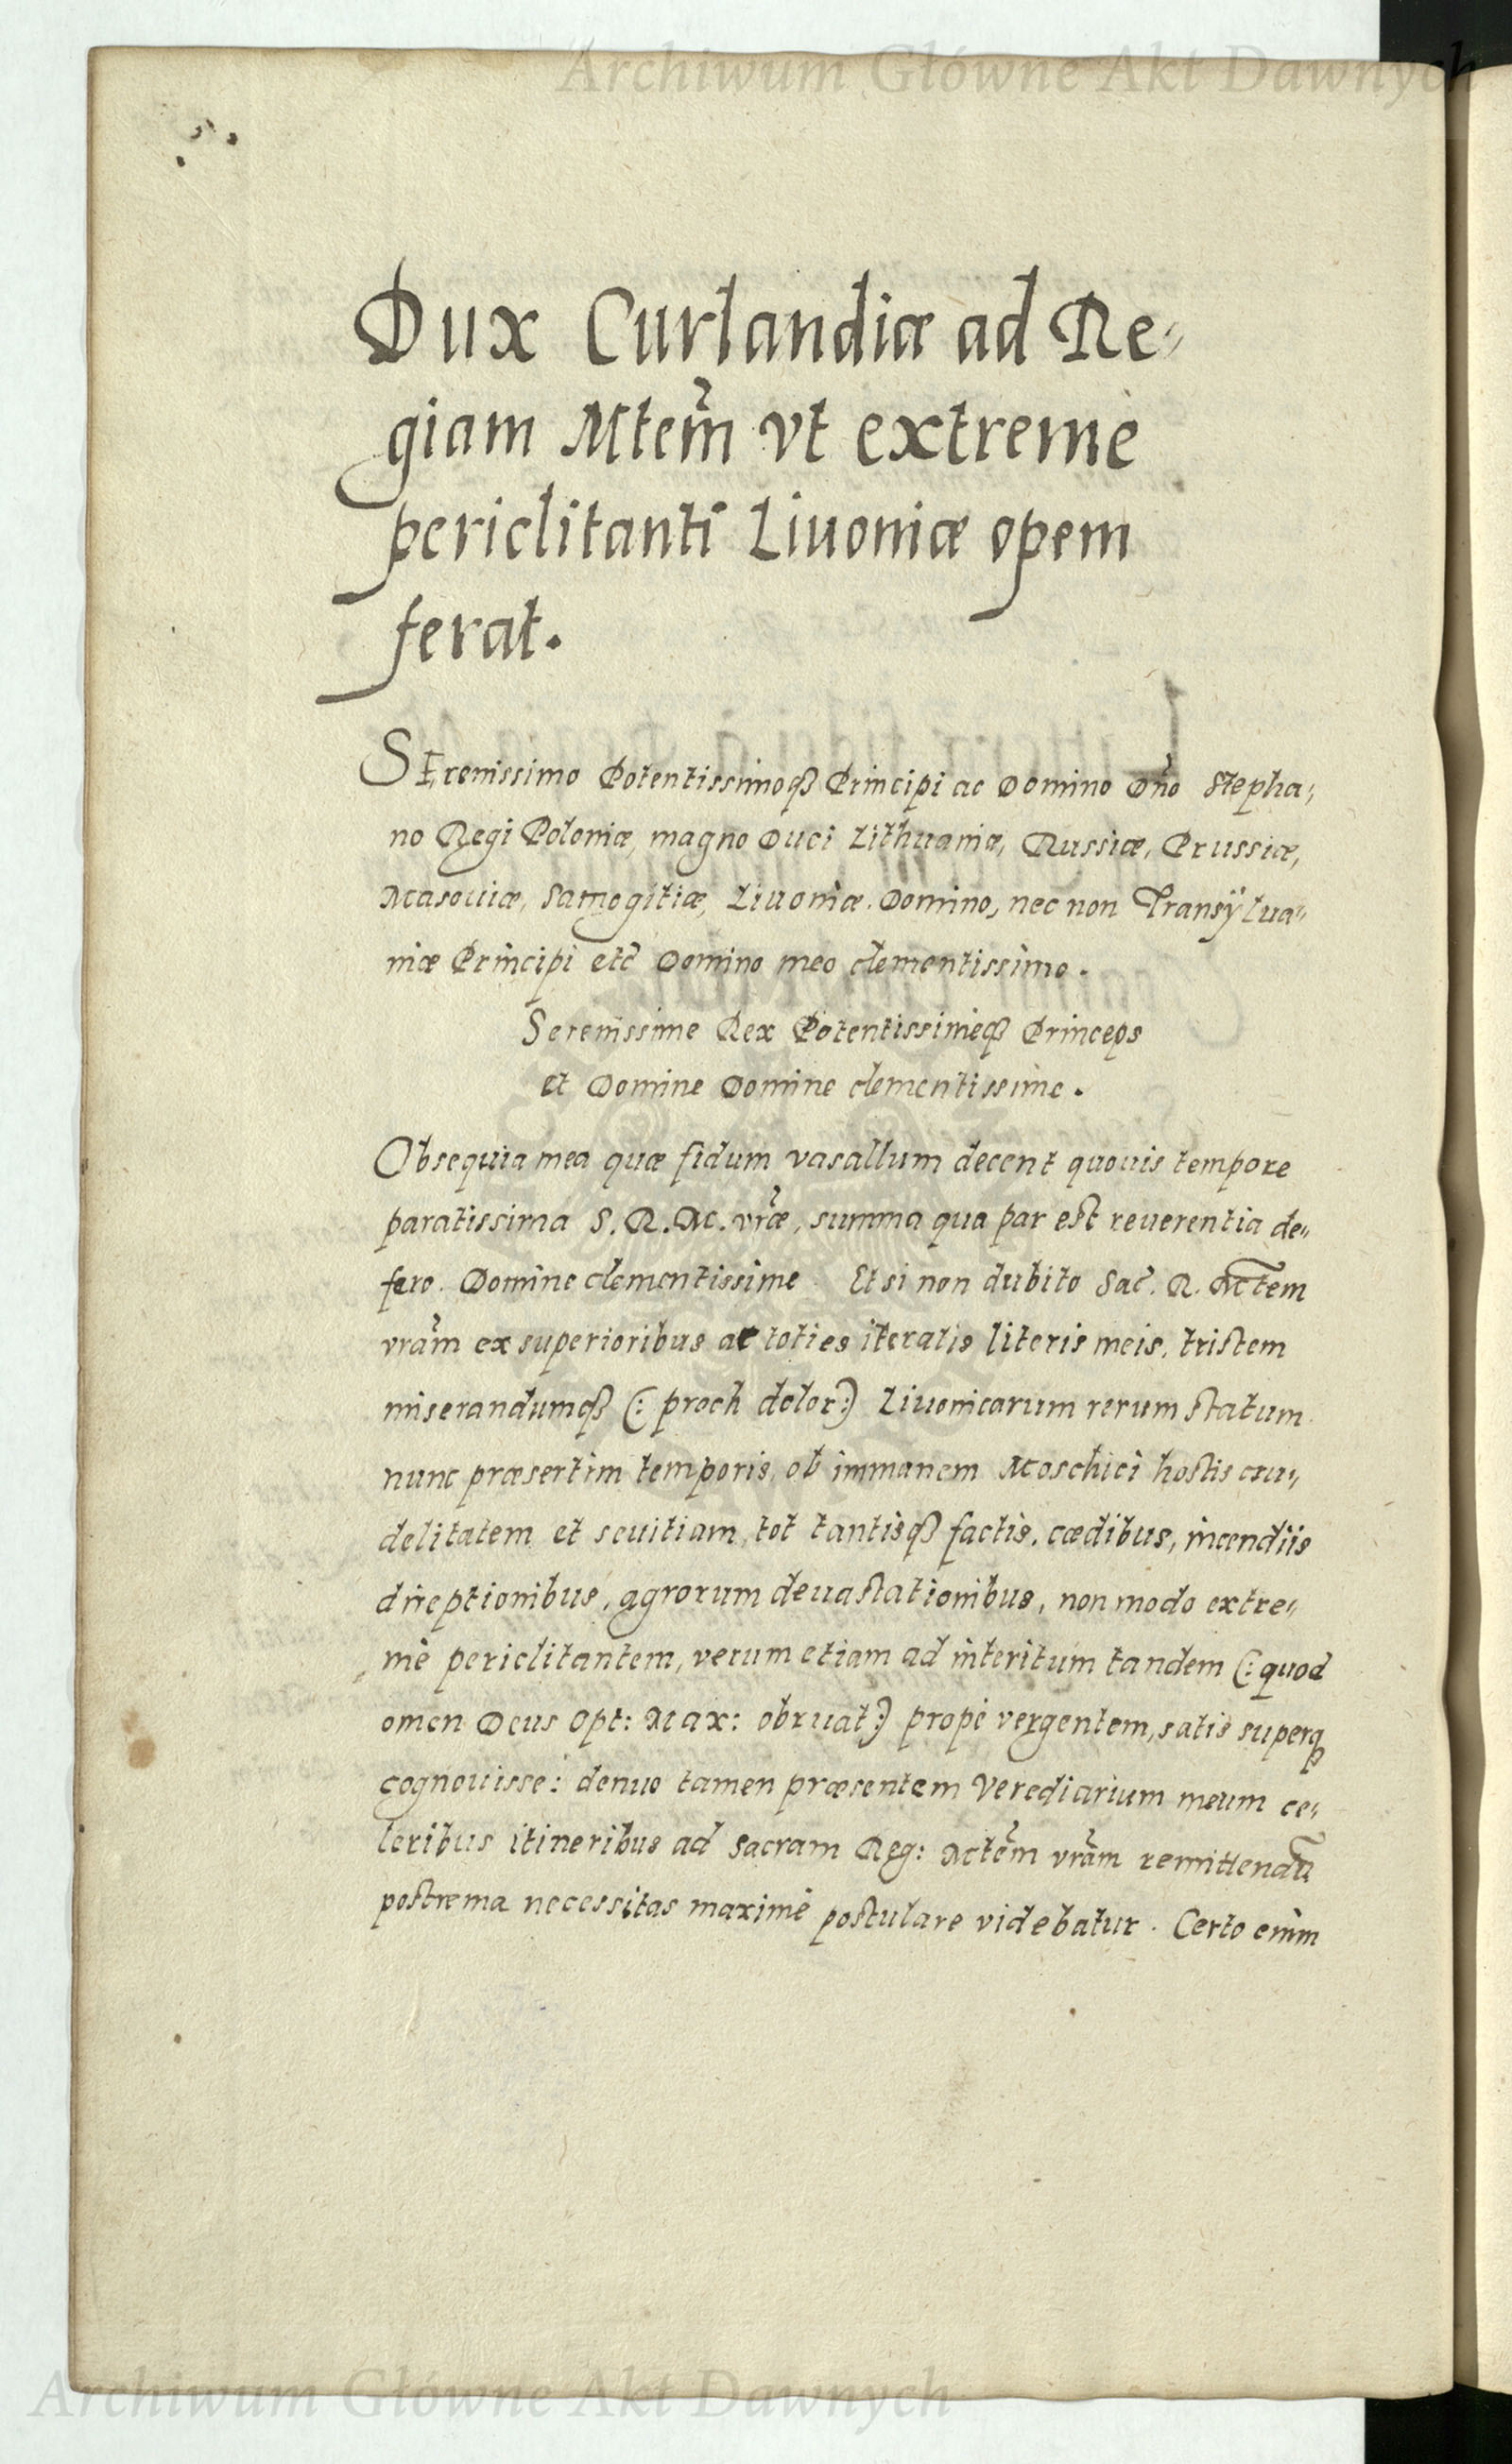 Archiwum Główne Akt Dawnych
Dux Curlandiæ ad Re„
giam Mtem̃ vt extremè
periclitanti Liuoniæ opem
ferat.
SErenissimo Potentissimoqꝫ Principi ac Domino Dño Stepha„
no Regi Poloniæ, magno Duci Lithuaniæ, Russiæ, Prussiæ,
Masouiæ, Samogitiæ, Liuoniæ. Domino, nec non Transÿlua„
niæ Principi etc̃ Domino meo clementissimo.
Serenissime Rex Potentissimeqꝫ Princeps
et Domine Domine clementissime.
Obsequia mea quæ fidum vasallum decent quouis tempore
paratissima S. R. M. vr̃æ, summa qua par est reuerentia de„
fero. Domine clementissime. Etsi non dubito Sac̃. R. Mt̃em
vrãm ex superioribus ac toties iteratis literis meis, tristem
miserandumqꝫ (: proch dolor:) Liuonicarum rerum statum
nunc præsertim temporis, ob immanem Moschici hostis cru„
delitatem et seuitiam, tot tantisqꝫ factis, cædibus, incendiis
direptionibus, agrorum deuastationibus, non modo extre„
mè periclitantem, verum etiam ad interitum tandem (: quod
omen Deus Opt: Max: obruat:) propè vergentem, satis superq
cognouisse: denuo tamen præsentem Verediarium meum ce„
leribus itineribus ad Sacram Reg: Mtẽm vrãm remittendũ
postrema necessitas maximè postulare videbatur. Certo enim
Archiwum Główne Akt Dawnych